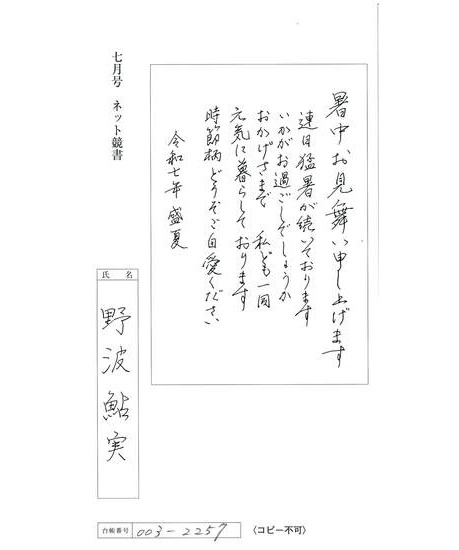 暑中お見舞い申し上げます
連日猛暑が続いております
いかがお過ごしでしょうか
おかげさまで 私ども一同
元気に暮らしております
時節柄どうぞご自愛ください
令和七年 盛夏
七月号 ネット競書
氏名
野波鮎実
台帳番号 003-2257
〈コピー不可〉